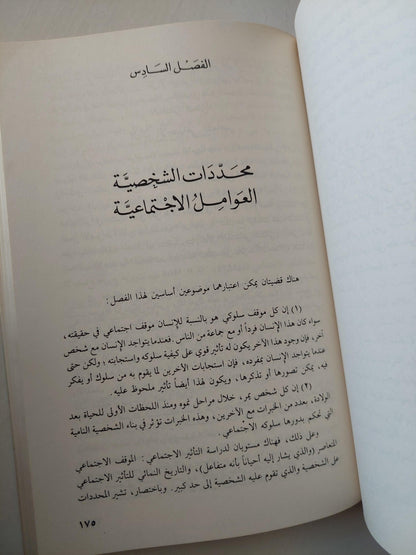 الفصل السادس
محددات الشخصية
العوامل الاجتماعية
هناك قضيتان يمكن اعتبارهما موضوعين أساسين لهذا الفصل :
(١) إن كل موقف سلوكي هو بالنسبة للإنسان موقف اجتماعي في حقيقته،
سواء كان هذا الإنسان فرداً أو مع جماعة من الناس. فعندما يتواجد الإنسان مع شخص
آخر، فإن وجود هذا الآخر يكون له تأثير قوي على كيفية سلوكه واستجابته، ولكن حتى
عندما يتواجد الإنسان بمفرده، فإن استجابات الآخرين لما يقوم به من سلوك أو يفكر
فيه، يمكن تصورها أو تذكرها، ويكون لهذا أيضاً تأثير ملحوظ عليه .
(٢) إن كل شخص يمر، خلال مراحل نموه ومنذ اللحظات الأولى للحياة بعد
الولادة، بعدد من الخبرات مع الآخرين، وهذه الخبرات تؤثر في بناء الشخصية النامية
التي تحكم بدورها سلوكه الاجتماعي .
وعلى ذلك، فهناك مستويان لدراسة التأثير الاجتماعي : الموقف الاجتماعي
المعاصر (والذي يشار إليه أحياناً بأنه متفاعل)، والتاريخ النمائي للتأثير الاجتماعي
على الشخصية والذي تقوم عليه الشخصية إلى حد كبير. وباختصار، تشير المحددات
١٧٥